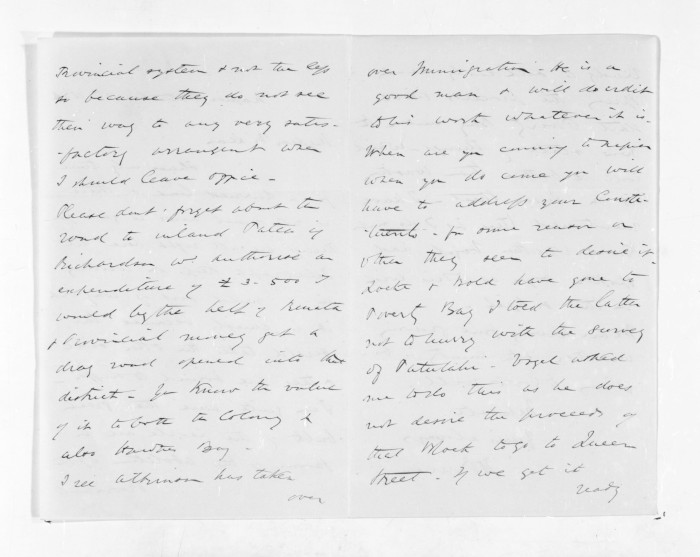 Provincial system & not the less
so because they do not see
their way to any very satis-
-factory arrangent when
I should leave office -
Please dont forget about the
road to inland Patea if
Richardson wd authorise an
expenditure of £3-500 I
would by the help of Renata
& Provincial money get a
dray road opened into the
district - You Know the value
of it to both the Colony &
also Hawkes Bay -
I see Atkinson has taken
over
over Immigration - He is a
good man & will do credit
to his work whatever it is -
When are you coming to Napier
when you do come you will
have to address your Consti-
-tuents - for some reason or
other they seem to desire it -
Locke & Bold have gone to
Poverty Bay I told the latter
not to hurry with the survey
of Patutahi - Vogel asked
me to do this as he does
not desire the proceeds of
that Block to go to Queen
Street - If we get it
ready